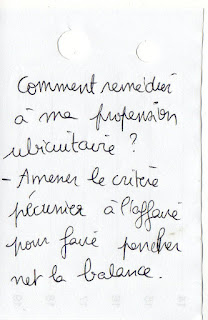 Comment remédier
à ma propension
ubiquitaire ?
- Amener le critère
pécunier à l'affaire
pour faire pencher
net la balance.